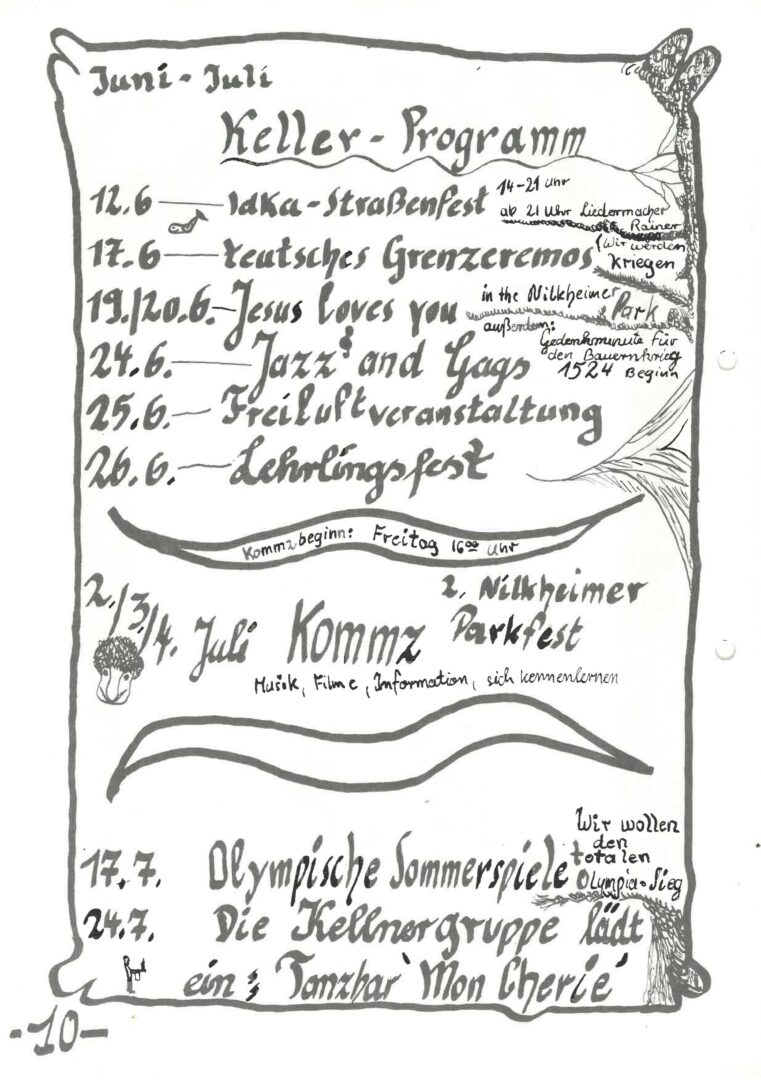 Juni - Juli
Keller - Programm
12.6 — Idka - Straßenfest 14-21 Uhr
ab 21 Uhr Liedermacher
Rainer
17.6 — teutsches Grenzeremos (Wir werden
Kriegen
19./20.6. - Jesus loves you in the Nilkheimer Park
außerdem:
Gedenkminute für
den Bauernkrieg
1524 Beginn
24.6. — Jazz and Gags
25.6. — Freiluftveranstaltung
26.6. — Lehrlingsfest
Kommzbeginn: Freitag 16⁰⁰ Uhr
2./3./4. Juli Kommz 2. Nilkheimer
Parkfest
Musik, Filme, Information, sich kennenlernen
Wir wollen
den
totalen
Olympia-Sieg
17.7. Olympische Sommerspiele
24.7. Die Kellnergruppe lädt
ein: Tanzbar 'Mon Cherie'
-10-